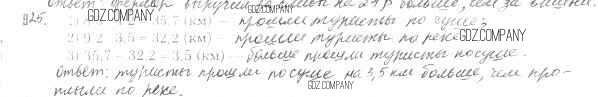 Ответ: фермер выручил на 248 больше, чем за вишни.
GDZ.COMPANY
925. 35,7 (км) – прошли туристы по суше;
GDZ.COMPANY
2) 9,2 · 3,5 = 32,2 (км) – прошли туристы по реке
3) 35,7 – 32,2 = 3,5 (км) – больше прошли туристы по суше.
Ответ: туристы прошли по суше на 3,5 км больше, чем про-
GDZ.COMPANY
плыли по реке.